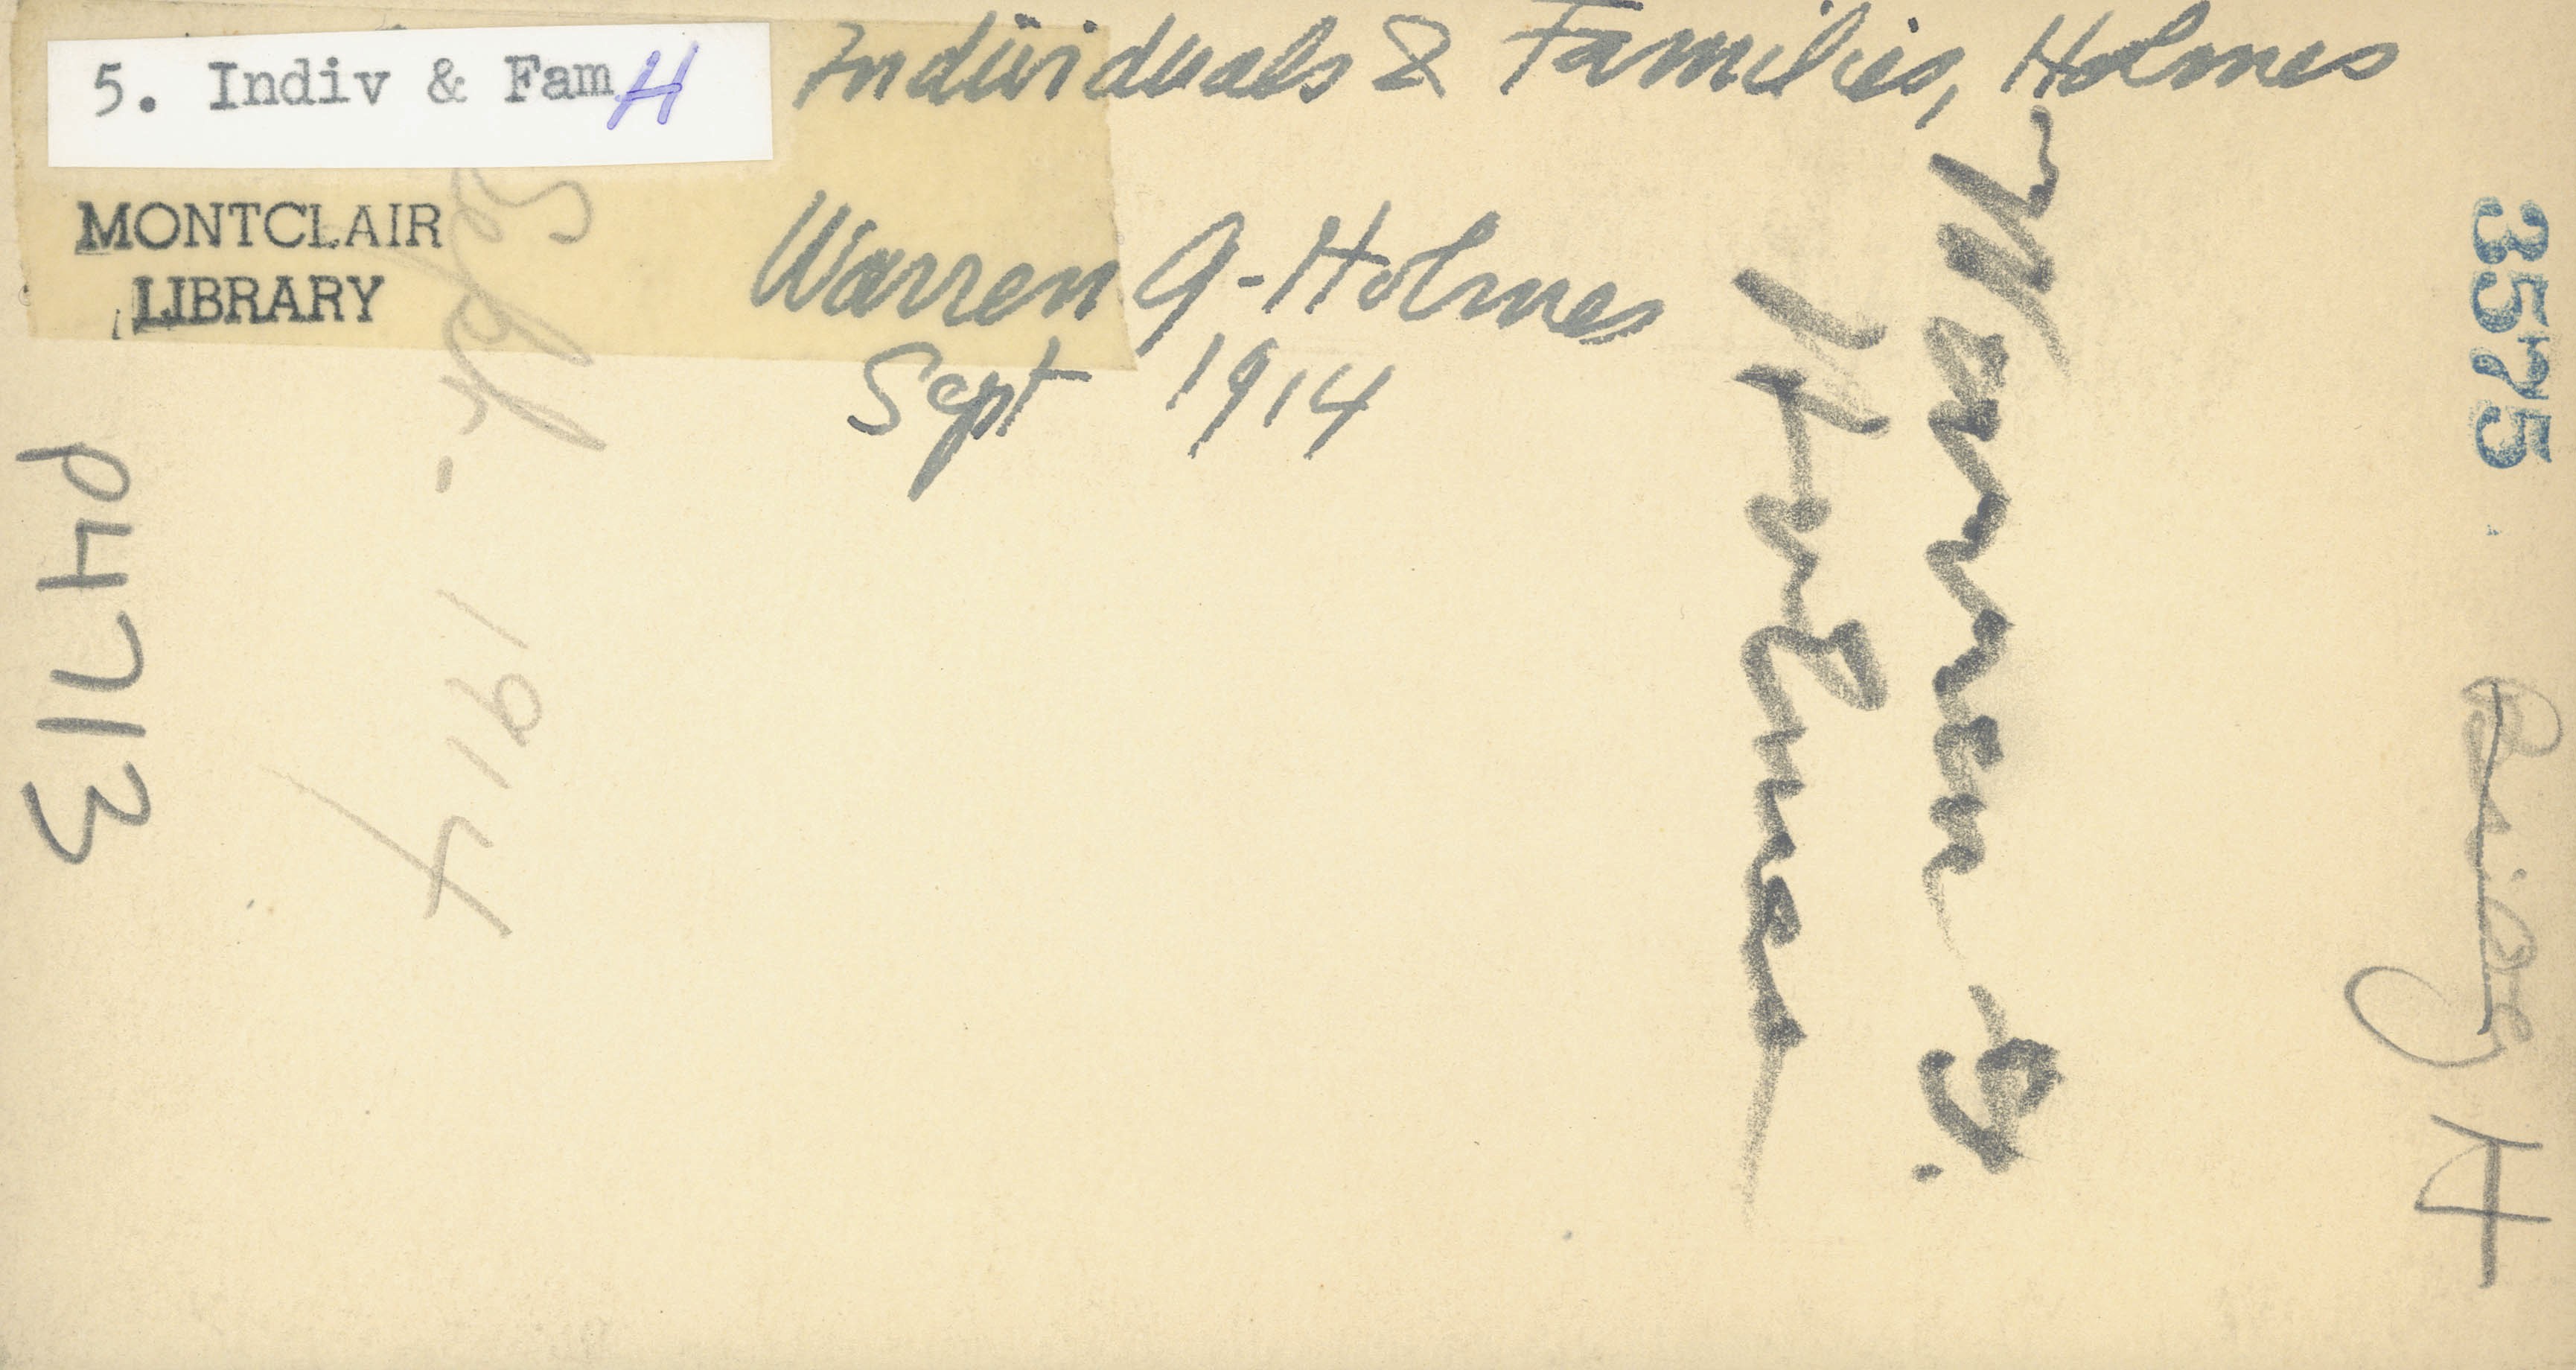 5. Indiv & Fam H
Individuals & Families, Holmes
MONTCLAIR
LIBRARY
Warren G-Holmes
Sept 1914
P4713
Sept. - 1914
Warren G.
Holmes
3575
Biog H